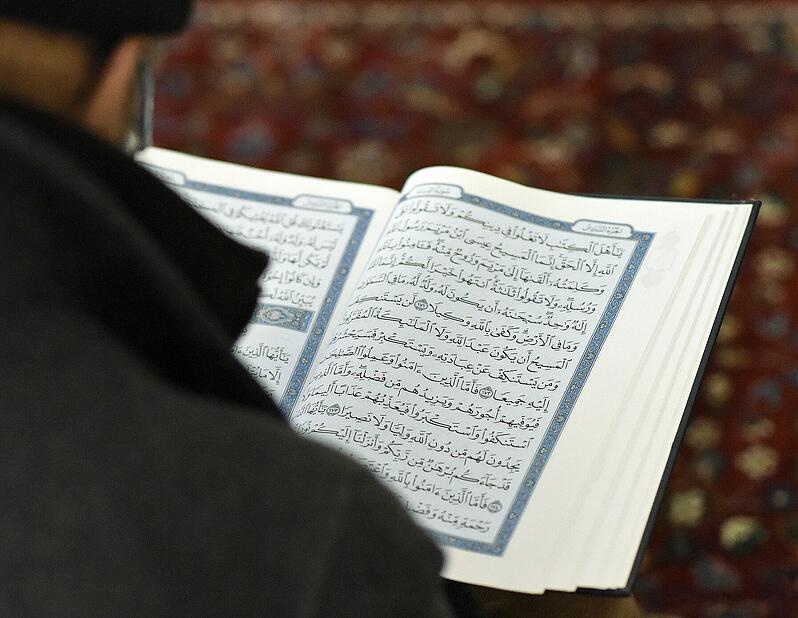 الجزء السادس
سورة النساء
يَٰٓأَهْلَ ٱلْكِتَٰبِ لَا تَغْلُوا۟ فِى دِينِكُمْ وَلَا تَقُولُوا۟ عَلَى
ٱللَّهِ إِلَّا ٱلْحَقَّ إِنَّمَا ٱلْمَسِيحُ عِيسَى ٱبْنُ مَرْيَمَ رَسُولُ ٱللَّهِ
وَكَلِمَتُهُۥٓ أَلْقَىٰهَآ إِلَىٰ مَرْيَمَ وَرُوحٌ مِّنْهُ فَـَٔامِنُوا۟ بِٱللَّهِ
وَرُسُلِهِۦ وَلَا تَقُولُوا۟ ثَلَٰثَةٌ ٱنتَهُوا۟ خَيْرًا لَّكُمْ إِنَّمَا ٱللَّهُ
إِلَٰهٌ وَٰحِدٌ سُبْحَٰنَهُۥٓ أَن يَكُونَ لَهُۥ وَلَدٌ لَّهُۥ مَا فِى ٱلسَّمَٰوَٰتِ
وَمَا فِى ٱلْأَرْضِ وَكَفَىٰ بِٱللَّهِ وَكِيلًا ١٧١ لَّن يَسْتَنكِفَ
ٱلْمَسِيحُ أَن يَكُونَ عَبْدًا لِّلَّهِ وَلَا ٱلْمَلَٰٓئِكَةُ ٱلْمُقَرَّبُونَ
وَمَن يَسْتَنكِفْ عَنْ عِبَادَتِهِۦ وَيَسْتَكْبِرْ فَسَيَحْشُرُهُمْ
إِلَيْهِ جَمِيعًا ١٧٢ فَأَمَّا ٱلَّذِينَ ءَامَنُوا۟ وَعَمِلُوا۟ ٱلصَّٰلِحَٰتِ
فَيُوَفِّيهِمْ أُجُورَهُمْ وَيَزِيدُهُم مِّن فَضْلِهِۦ وَأَمَّا ٱلَّذِينَ
ٱسْتَنكَفُوا۟ وَٱسْتَكْبَرُوا۟ فَيُعَذِّبُهُمْ عَذَابًا أَلِيمًا وَلَا
يَجِدُونَ لَهُم مِّن دُونِ ٱللَّهِ وَلِيًّا وَلَا نَصِيرًا ١٧٣ يَٰٓأَيُّهَا
قَدْ جَآءَكُم بُرْهَٰنٌ مِّن رَّبِّكُمْ وَأَنزَلْنَآ إِلَيْكُمْ نُورًا
١٧٤ فَأَمَّا ٱلَّذِينَ ءَامَنُوا۟ بِٱللَّهِ وَٱعْتَصَمُوا۟
رَحْمَةٍ مِّنْهُ وَفَضْلٍ
يَسْتَفْتُونَكَ قُلِ ٱللَّهُ يُفْتِيكُمْ فِى
لَيْسَ لَهُۥ وَلَدٌ وَلَهُۥٓ أُخْتٌ
إِن لَّمْ يَكُن لَّهَا
وَإِن كَانُوٓا۟ إِخْوَةً
يُبَيِّنُ ٱللَّهُ لَكُمْ
يَٰٓأَيُّهَا ٱلَّذِينَ ءَامَنُوٓا۟
إِلَّا مَا